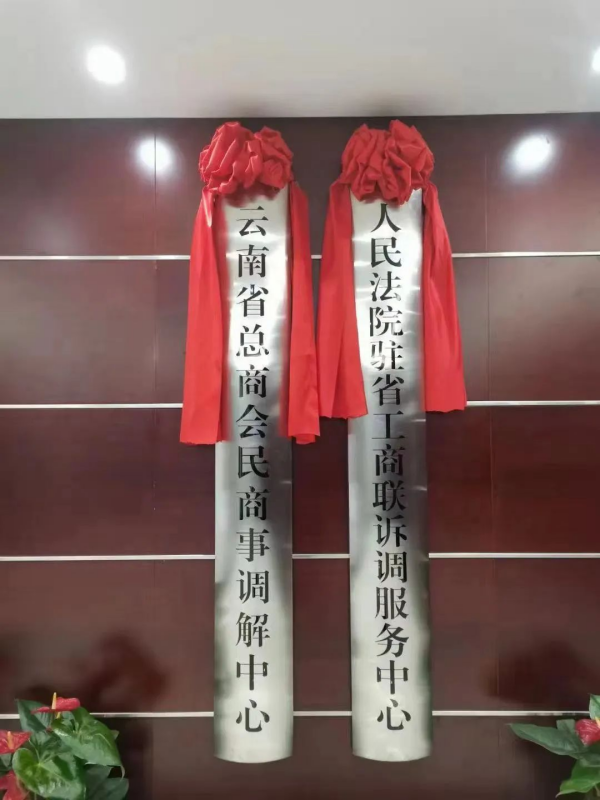 云南省总商会民商事调解中心
人民法院驻省工商联诉调服务中心